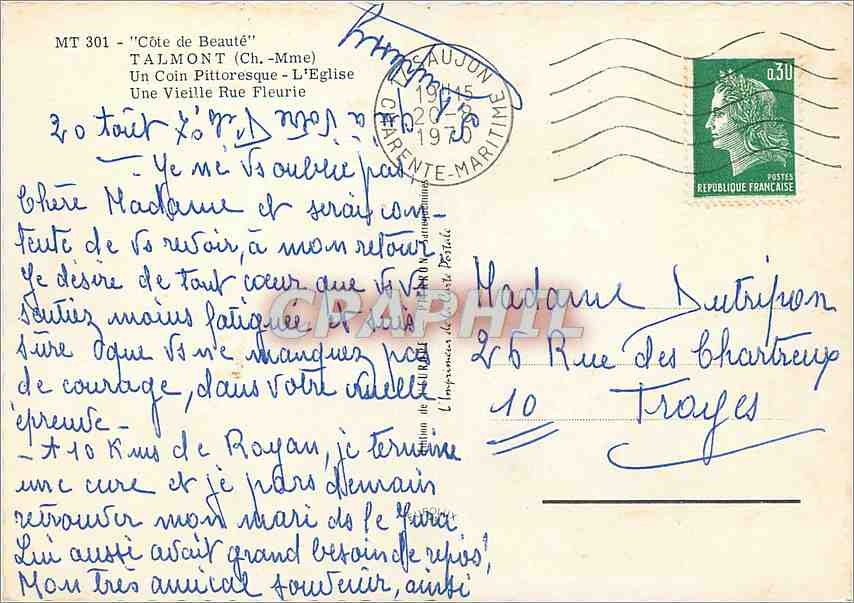 MT 301 - "Côte de Beauté"
TALMONT (Ch.-Mme)
Un Coin Pittoresque - L'Eglise
Une Vieille Rue Fleurie
17 SAUJON
19H15
20-8
1970
CHARENTE-MARITIME
0,30
POSTES
REPUBLIQUE FRANÇAISE
20 août 70
- Je ne vs oublie pas,
Chère Madame et serais con-
tente de vs revoir, à mon retour.
Je désire de tout cœur que vs vs
sentiez moins fatiguée et suis
sûre que vs ne manquez pas
de courage, dans votre cruelle
épreuve -
- A 10 Kms de Royan, je termine
une cure et je pars demain
retrouver mon mari ds le Jura
Lui aussi avait grand besoin de repos!
Mon très amical souvenir, ainsi
à votre
Madame Dutripon
26 Rue des Chartreux
10 Troyes
L'Imprimeur de la Carte Postale
CPAPHIL